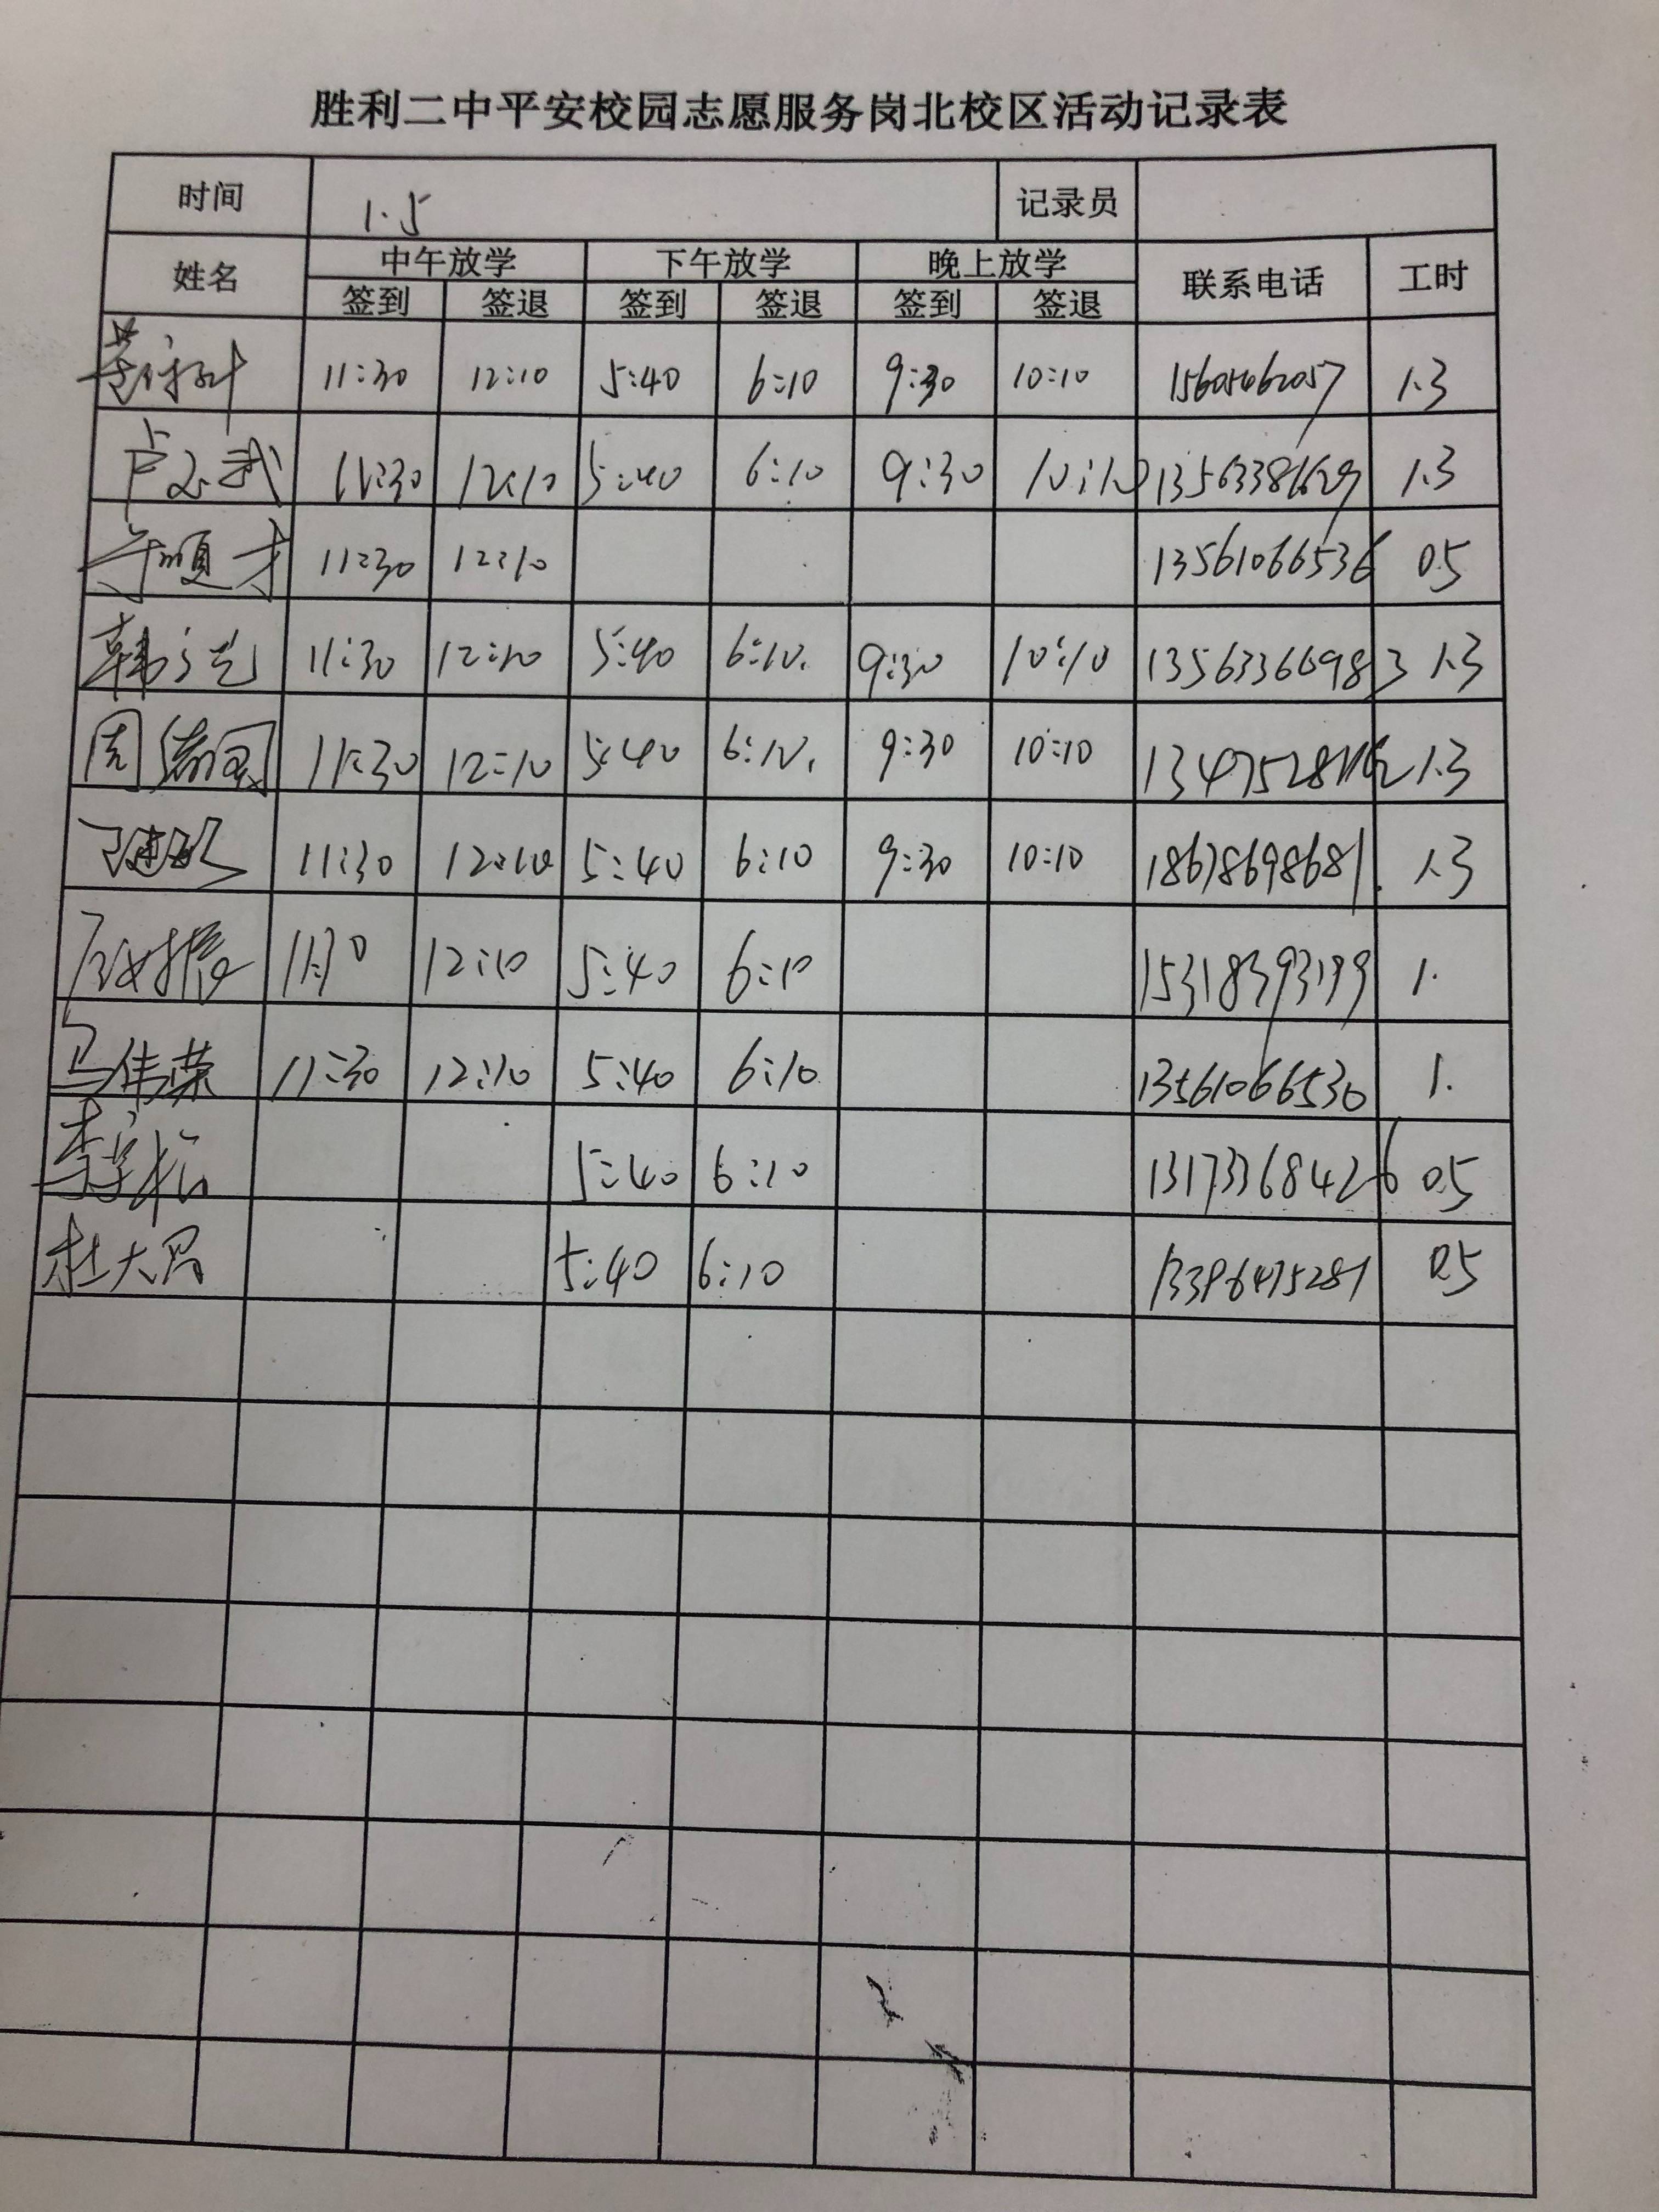 胜利二中平安校园志愿服务岗北校区活动记录表
时间 1.5 记录员
姓名 中午放学 下午放学 晚上放学 联系电话 工时
签到 签退 签到 签退 签到 签退
11:30 12:10 5:40 6:10 9:30 10:10 15605462057 1.3
11:30 12:10 5:40 6:10 9:30 10:10 13563381629 1.3
11:30 12:10 13561066536 0.5
11:30 12:10 5:40 6:10. 9:30 10:10 13563366983 1.3
11:30 12:10 5:40 6:10. 9:30 10:10 1.3
11:30 12:10 5:40 6:10 9:30 10:10 18678698681. 1.3
11:30 12:10 5:40 6:10 15318393199 1.
马伟荣 11:30 12:10 5:40 6:10 13561066530 1.
李学松 5:40 6:10 13173368426 0.5
杜大昌 5:40 6:10 13396475281 0.5